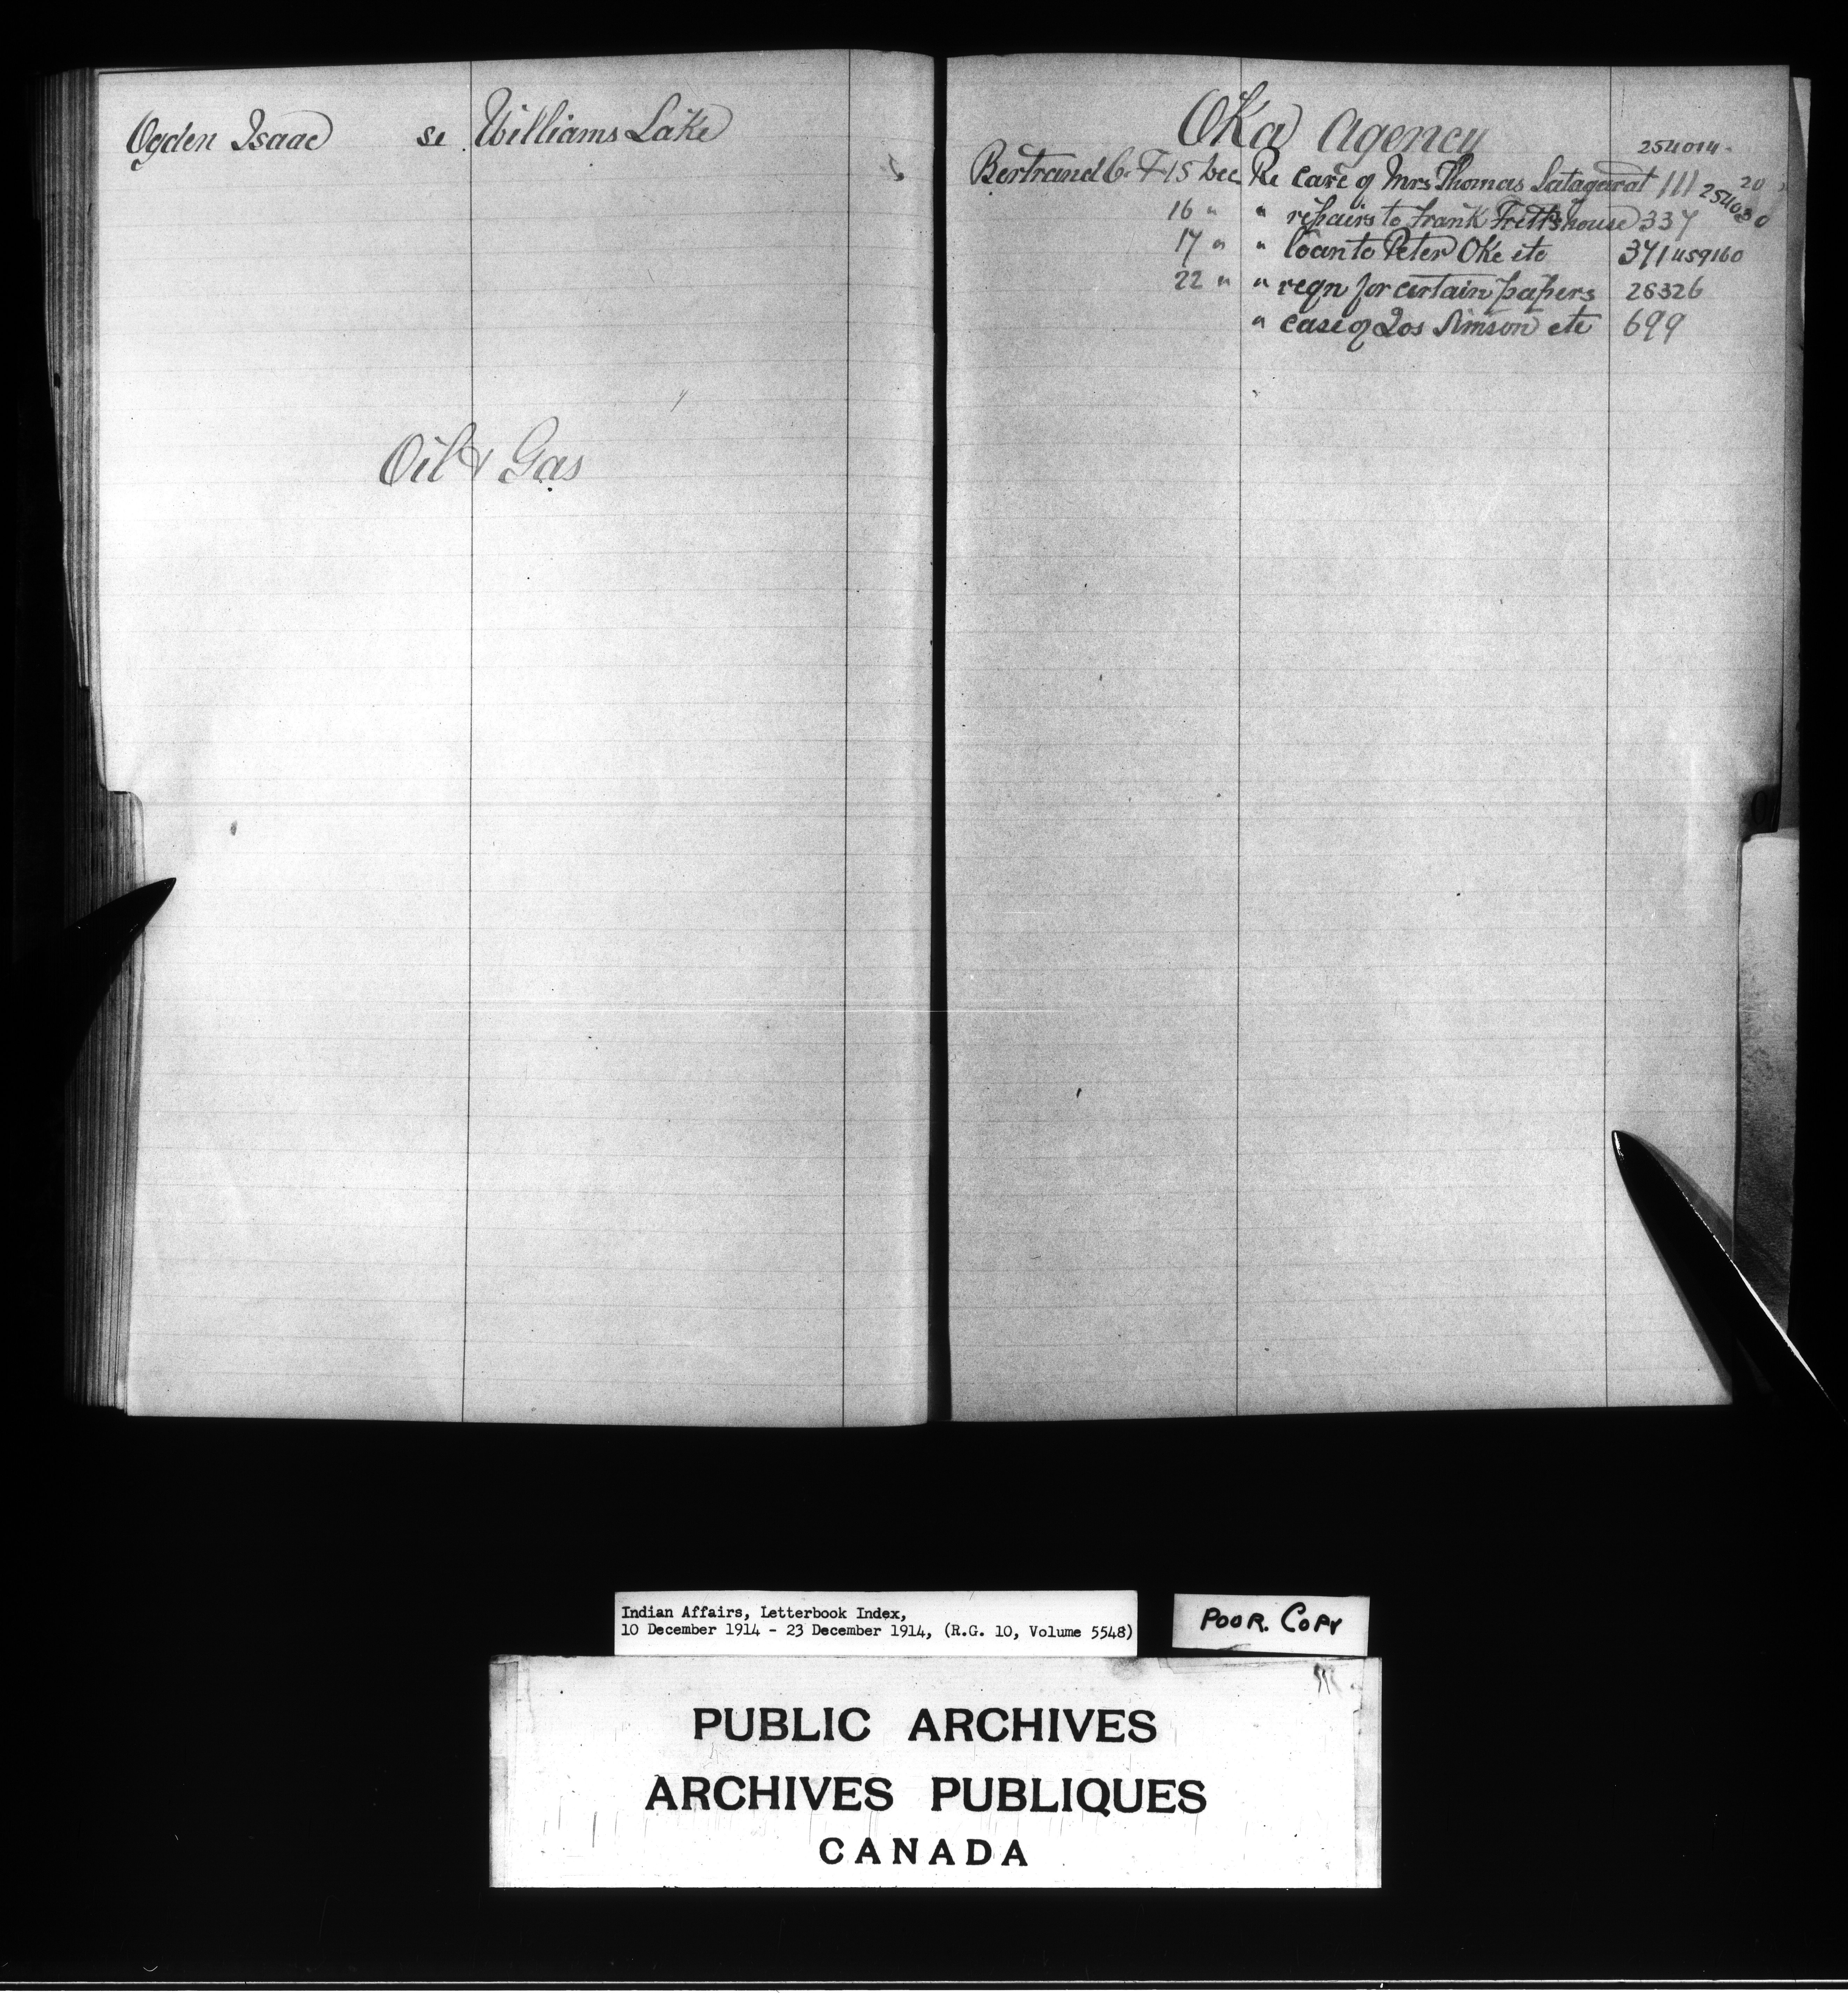 Ogden Isaac se Williams Lake
Oil & Gas
Oka Agency
254014
Bertrand C. F. 15 Dec Re care of Mrs Thomas 111 20
254030
16 " " repairs to Frank Fritts house 337
17 " " loan to Peter Oke etc 371 459160
22 " " reqn for certain papers 26326
" case of Jos Simson etc 699
Indian Affairs, Letterbook Index,
10 December 1914 - 23 December 1914, (R.G. 10, Volume 5548)
POOR. COPY
PUBLIC ARCHIVES
ARCHIVES PUBLIQUES
CANADA